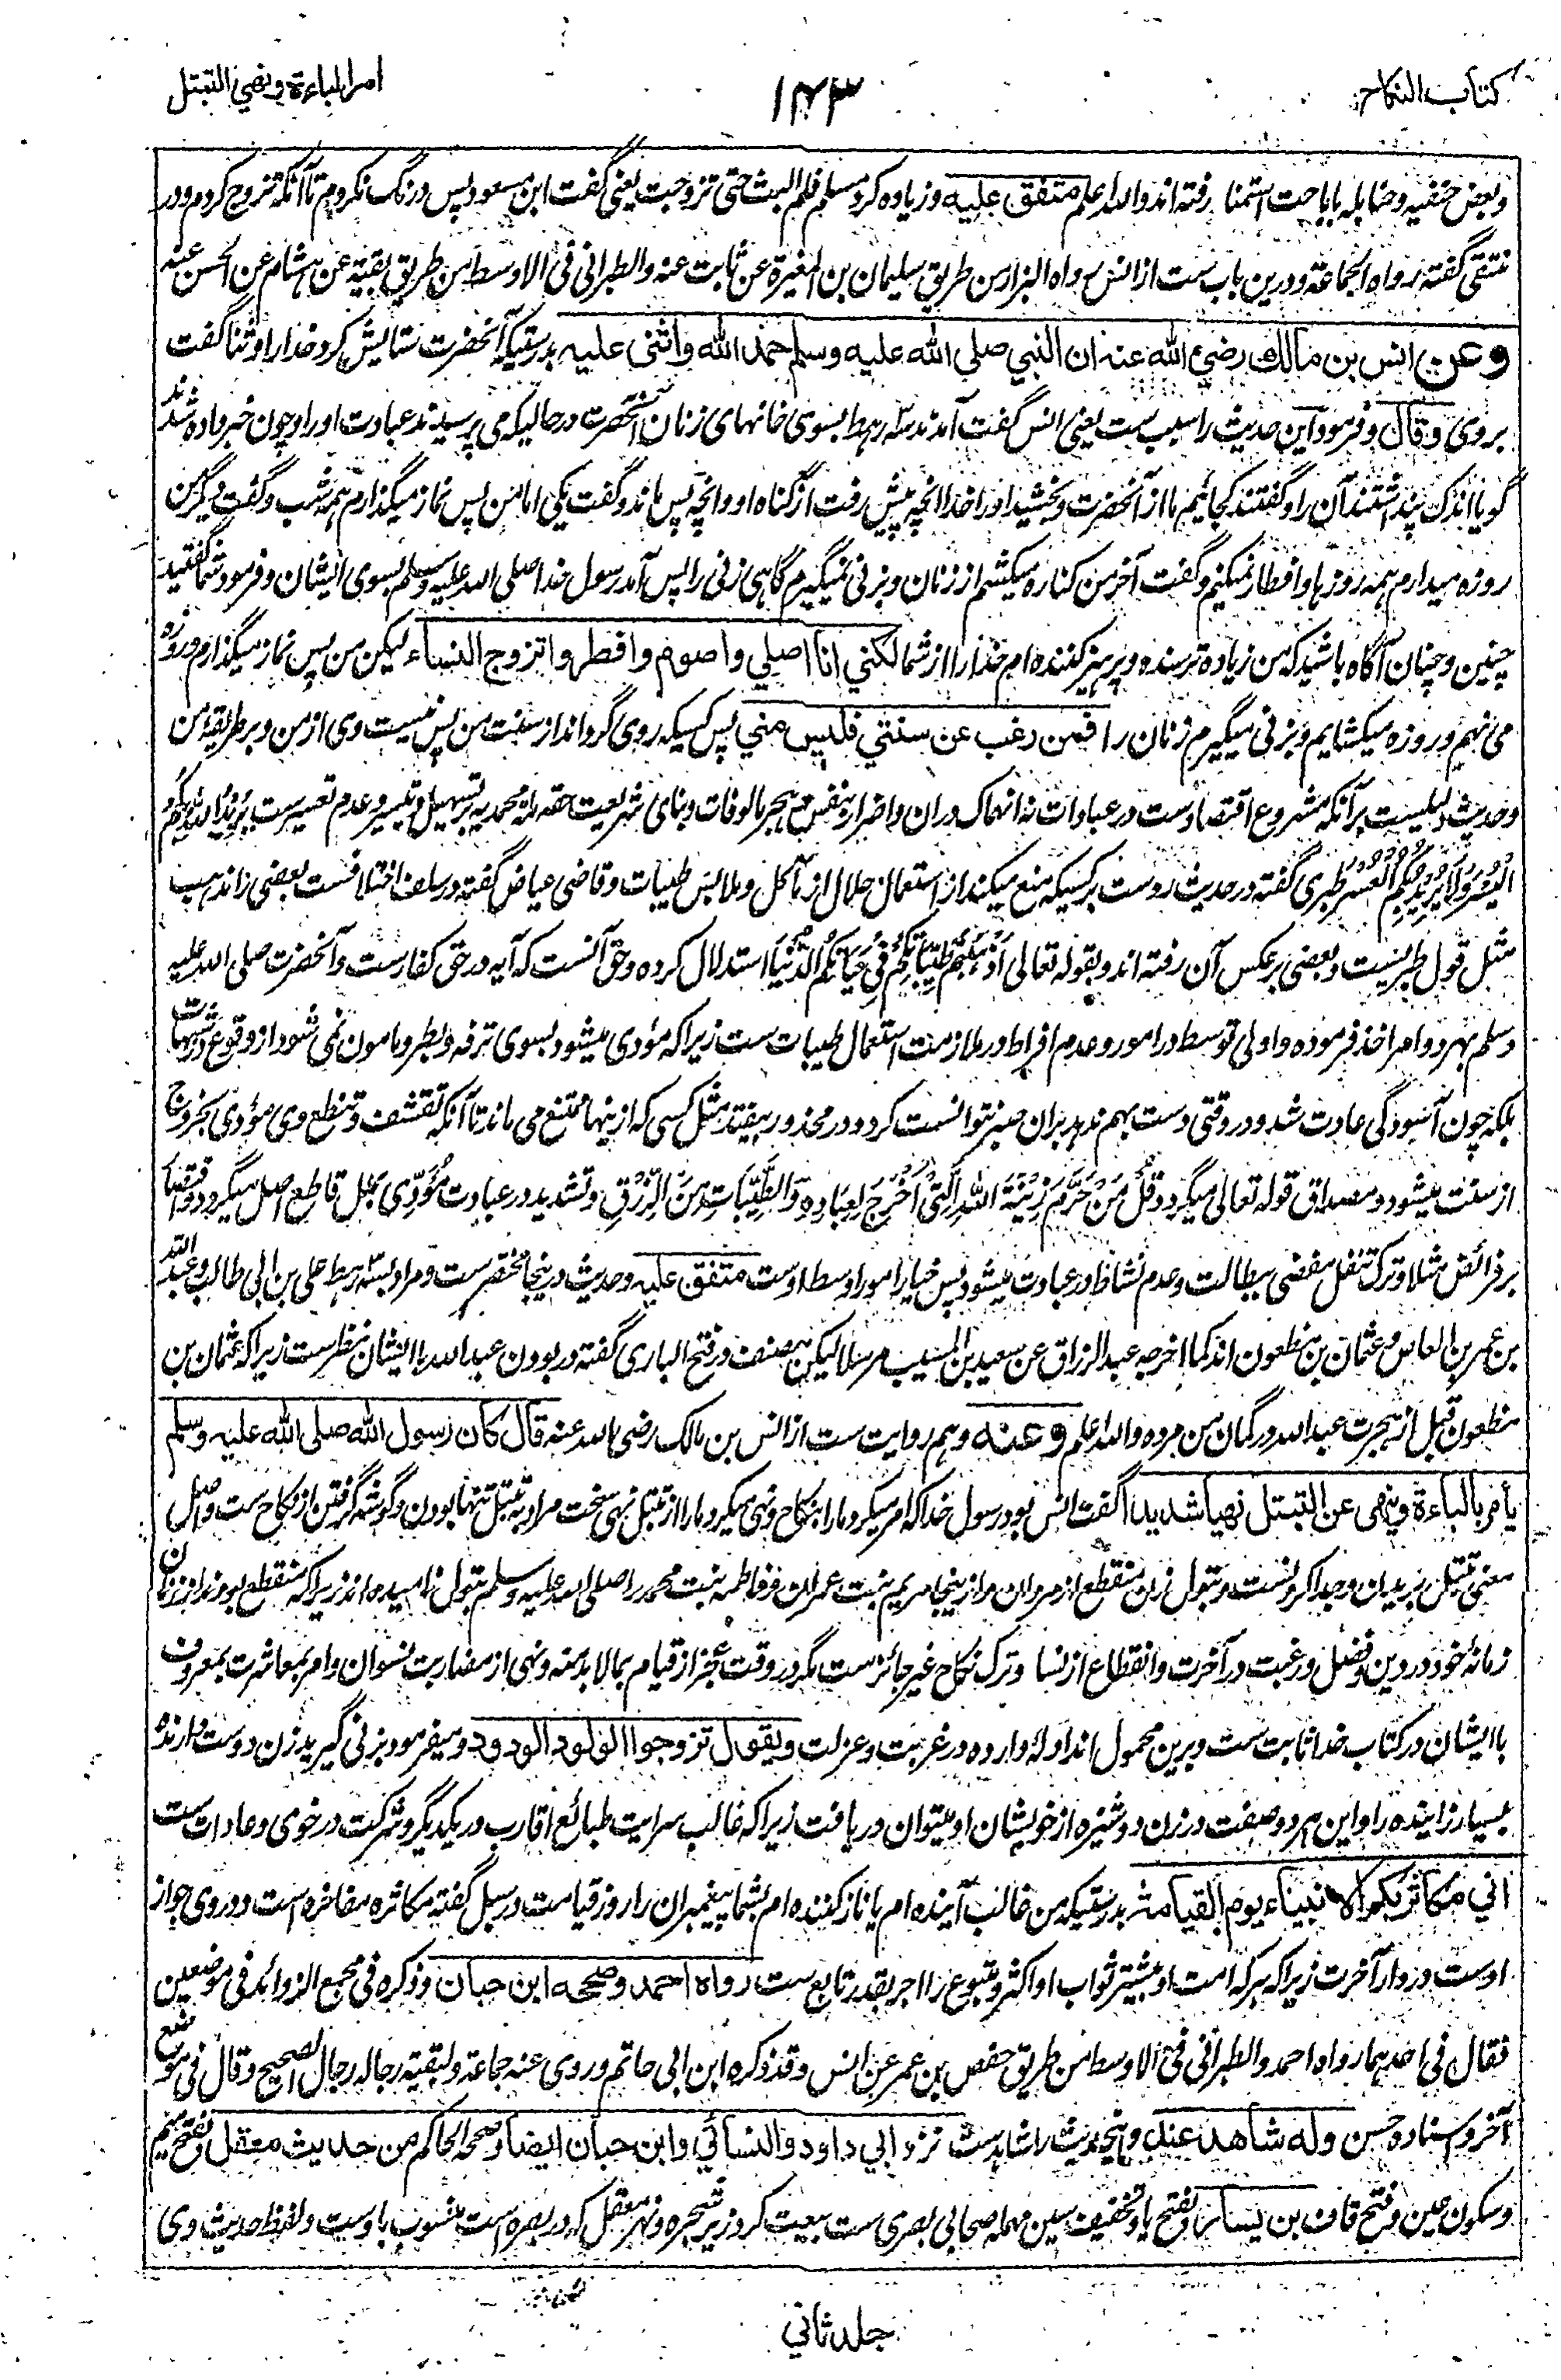 كتاب النكاح
١٦٣
امر الباءة ونهي التبتل
وبعض حنفیه وحنابله باباحت استمنا رفته اند والله اعلم متفق علیه وزیاده کرد مسلم فلم البث حتی تزوجت یعنی گفت ابن مسعود پس درنگ نکردم تا آنکه تزوج کردم ودر
منتقی گفته رواه الجماعة ودرین باب ست از انس رواه البزار من طریق سلیمان بن المغیرة عن ثابت عنه والطبرانی فی الاوسط من طریق بقیة عن هشام عن الحسن عنه
وعن انس بن مالك رضي الله عنه ان النبي صلى الله عليه وسلم حمد الله واثنى عليه بدرستیکه آنحضرت ستایش کرد خدا را وثنا گفت
بروی وقال وفرمود این حدیث را سبب ست یعنی انس گفت آمدند سه رهط بسوی خانهای زنان آنحضرت درحالیکه می پرسیدند عبادت او را وچون خبر داده شدند
گویا اندک پنداشتند آن را وگفتند کجائیم ما از آنحضرت وبخشید او را خدا انچه پیش رفت از گناه او وانچه پس ماند وگفت یکی اما من پس نماز میگذارم همه شب وگفت دیگر من
روزه میدارم همه روزها وافطار نمیکنم وگفت آخر من کناره میکشم از زنان وبزنی نمیگیرم گاهی زنی را پس آمد رسول خدا صلی الله علیه وسلم بسوی ایشان وفرمود شما گفتید
چنین وچنان آگاه باشید که من زیاده ترسنده وپرهیز کننده ام خدا را از شما لكني انا اصلي واصوم وافطر واتزوج النساء لیکن من پس نماز میگذارم وروزه
می نهم وروزه میکشایم وبزنی میگیرم زنان را فمن رغب عن سنتي فليس مني پس کسیکه روی گرداند از سنت من پس نیست وی از من وبر طریقهٔ من
وحدیث دلیلست برآنکه مشروع اقتصادست در عبادات نه انهماک دران واضرار بنفس مع هجر مالوفات وبنای شریعت حقه ملهٔ محمدیه بر تسهیل وتیسیر وعدم تعسیرست یُرِیْدُ اللهُ بِکُمُ
الْیُسْرَ وَلَا یُرِیْدُ بِکُمُ الْعُسْرَ طبری گفته در حدیث ردست بر کسیکه منع میکند از استعمال حلال از مآکل وملابس طیبات وقاضی عیاض گفته در سلف اختلافست بعضی را مذهب
مثل قول طبریست وبعضی برعکس آن رفته اند وبقوله تعالی اَذْهَبْتُمْ طَیِّبَاتِکُمْ فِیْ حَیَاتِکُمُ الدُّنْیَا استدلال کرده وحق آنست که آیه در حق کفارست وآنحضرت صلی الله علیه
وسلم بهر دو امر اخذ فرموده واولی توسط در امور وعدم افراط در ملازمت استعمال طیبات ست زیراکه مؤدی میشود بسوی ترفه وبطر ومامون نمی شود از وقوع در شبهات
بلکه چون آسودگی عادت شد ودر وقتی دست بهم ندهد بران صبر نتوانست کرد ودر محذور بیفتد مثل کسی که ازینها ممتنع می ماند تا آنکه تقشف وتنطع وی مؤدی بخروج
از سنت میشود ومصداق قوله تعالی میگردد قُلْ مَنْ حَرَّمَ زِیْنَةَ اللهِ الَّتِیْ اَخْرَجَ لِعِبَادِهِ وَالطَّیِّبَاتِ مِنَ الرِّزْقِ وتشدید در عبادت مُؤَدِّی بملل قاطع اصل میگردد واقتصار
بر فرائض مثلا وترک تنفل مفضی ببطالت وعدم نشاط در عبادت میشود پس خیار امور اوسط اوست متفق عليه وحدیث درینجا مختصرست ومراد بسه رهط علی بن ابی طالب وعبد الله
بن عمرو بن العاص وعثمان بن مظعون اند کما اخرجه عبد الرزاق عن سعید بن المسیب مرسلا لیکن مصنف در فتح الباری گفته در بودن عبد الله با ایشان نظرست زیراکه عثمان بن
مظعون قبل از هجرت عبد الله در گمان من مرده والله اعلم وعنه وهم روایت ست از انس بن مالک رضی الله عنه قال كان رسول الله صلى الله عليه وسلم
يأمر بالباءة وينهى عن التبتل نهيا شديدا گفت انس بود رسول خدا که امر میکرد ما را بنکاح ونهی میکرد ما را از تبتل نهی سخت مراد به تبتل تنها بودن وگوشه گرفتن از نکاح ست واصل
معنی تبتل بریدن وجدا کردنست وبتول زن منقطع از مردان وازینجا مریم بنت عمران وفاطمه بنت محمد را صلی الله علیه وسلم بتول نامیده اند زیراکه منقطع بودند از زنان
زمانهٔ خود در دین وفضل ورغبت در آخرت وانقطاع از نسا وترک نکاح غیر جائزست مگر در وقت عجز از قیام بمالابد منه ونهی از مضاربت نسوان وامر بمعاشرت بمعروف
با ایشان در کتاب خدا ثابت ست وبرین محمول اند ادلهٔ وارده در غربت وعزلت ويقول تزوجوا الولود الودود ومیفرمود بزنی گیرید زن دوست دارنده
بسیار زاینده را واین هر دو صفت در زن دوشیزه از خویشان او میتوان دریافت زیراکه غالب سرایت طبائع اقارب در یکدیگر وشرکت در خوی وعادات ست
اني مكاثر بكم الانبياء يوم القيامة بدرستیکه من غالب آینده ام یا ناز کننده ام بشما پیغمبران را روز قیامت در سبل گفته مکاثره مفاخره است ودر وی جواز
اوست در دار آخرت زیراکه هرکه امت او بیشتر ثواب او اکثر ومتبوع را اجر بقدر تابع ست رواه احمد وصححه ابن حبان وذکره فی مجمع الزوائد فی موضعین
فقال فی احدهما رواه احمد والطبرانی فی الاوسط من طریق حفص بن عمر عن انس وقد ذکره ابن ابی حاتم وروی عنه جماعة وبقیة رجاله رجال الصحیح وقال فی موضع
آخر واسناده حسن وله شاهد عند واینحدیث را شاهدست نزد ابي داود والنسائي وابن حبان ایضا وصححه الحاکم من حديث معقل بفتح میم
وسکون عین وفتح قاف بن يسار بفتح یا وتخفیف سین مهمله صحابی بصری ست بیعت کرد زیر شجره ونهر معقل که در بصره است منسوب باوست ولفظ حدیث وی
جلد ثاني